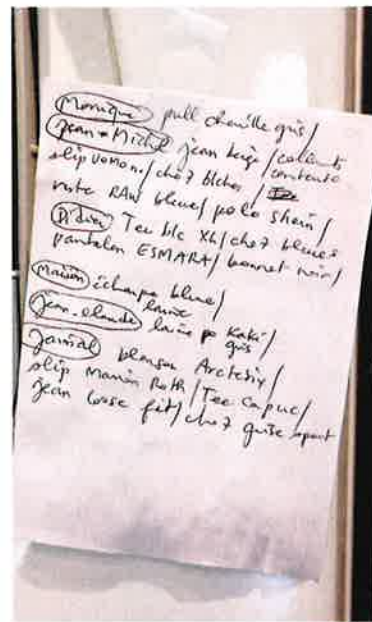 Monique pull chenille gris /
Jean-Michel jean beige / collants contento
slip VOMON. / cho7 blches /
veste RAW bleue / polo Shein /
Didier Tee blc XL / cho7 bleues
pantalon ESMARA / bonnet noir /
Marion écharpe bleue /
Jean-Claude laine po Kaki / gris
Jamal blouson Arctedix /
slip Manin Roth / Tee Capuc /
Jean loose fit / cho7 grise sport